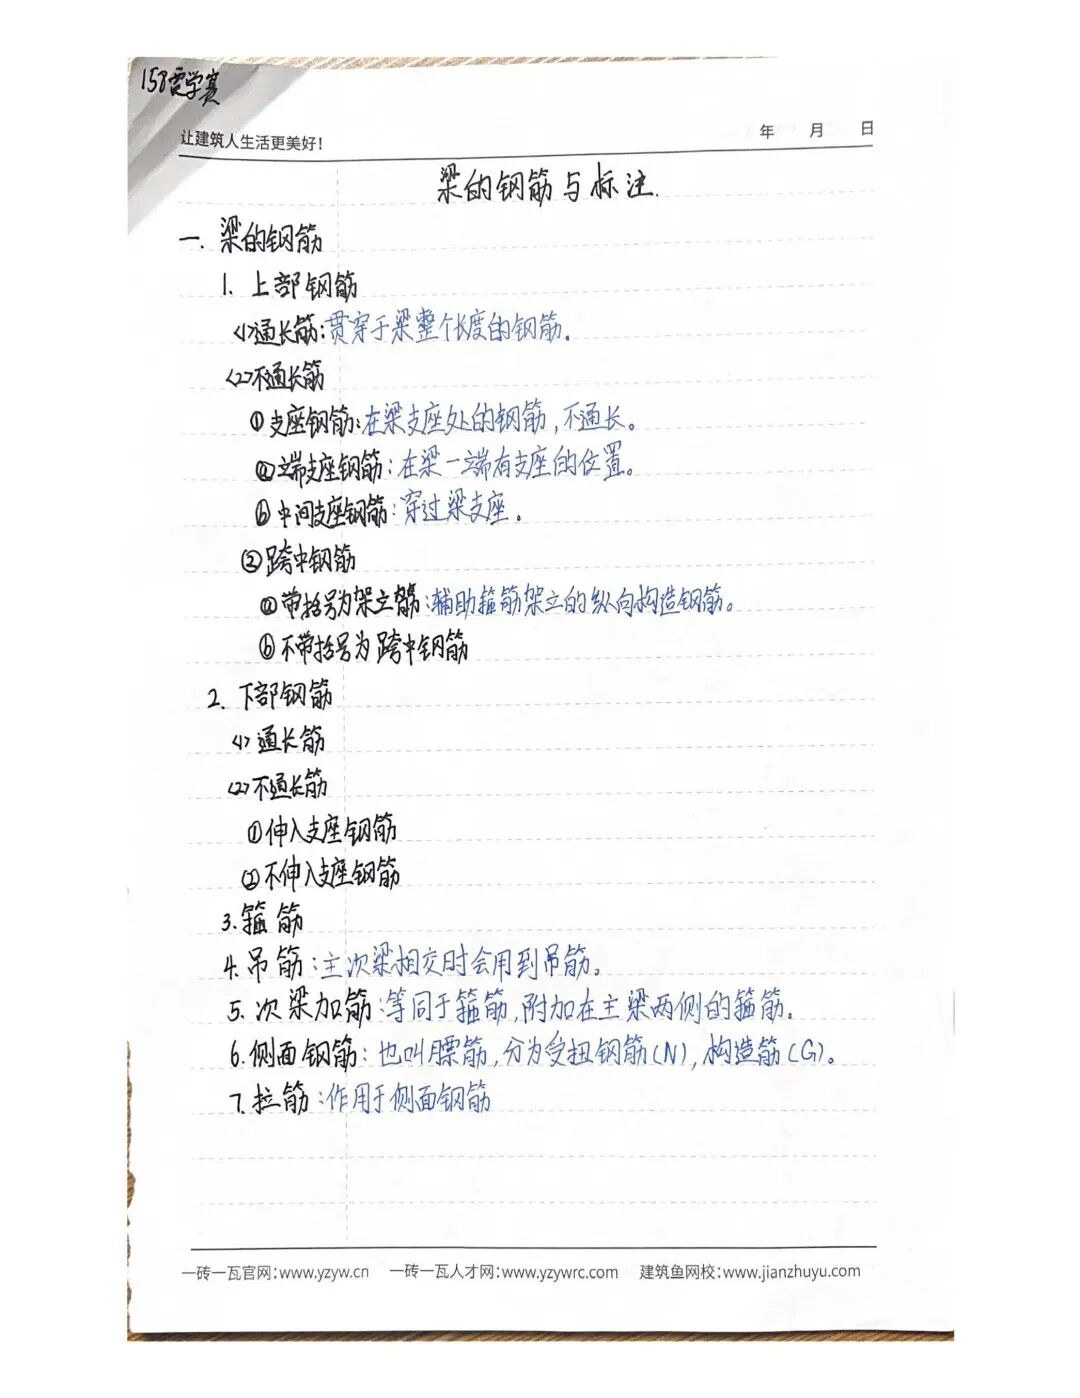 158霍学赛
让建筑人生活更美好!
年 月 日
梁的钢筋与标注.
一. 梁的钢筋
1. 上部钢筋
<1>通长筋:贯穿于梁整个长度的钢筋。
<2>不通长筋
①支座钢筋:在梁支座处的钢筋,不通长。
ⓐ端支座钢筋:在梁一端有支座的位置。
ⓑ中间支座钢筋:穿过梁支座。
②跨中钢筋
ⓐ带括号为架立筋:辅助箍筋架立的纵向构造钢筋。
ⓑ不带括号为跨中钢筋
2. 下部钢筋
<1>通长筋
<2>不通长筋
①伸入支座钢筋
②不伸入支座钢筋
3.箍筋
4.吊筋:主次梁相交时会用到吊筋。
5.次梁加筋:等同于箍筋,附加在主梁两侧的箍筋。
6.侧面钢筋:也叫腰筋,分为受扭钢筋(N),构造筋(G)。
7.拉筋:作用于侧面钢筋
一砖一瓦官网:www.yzyw.cn 一砖一瓦人才网:www.yzywrc.com 建筑鱼网校:www.jianzhuyu.com